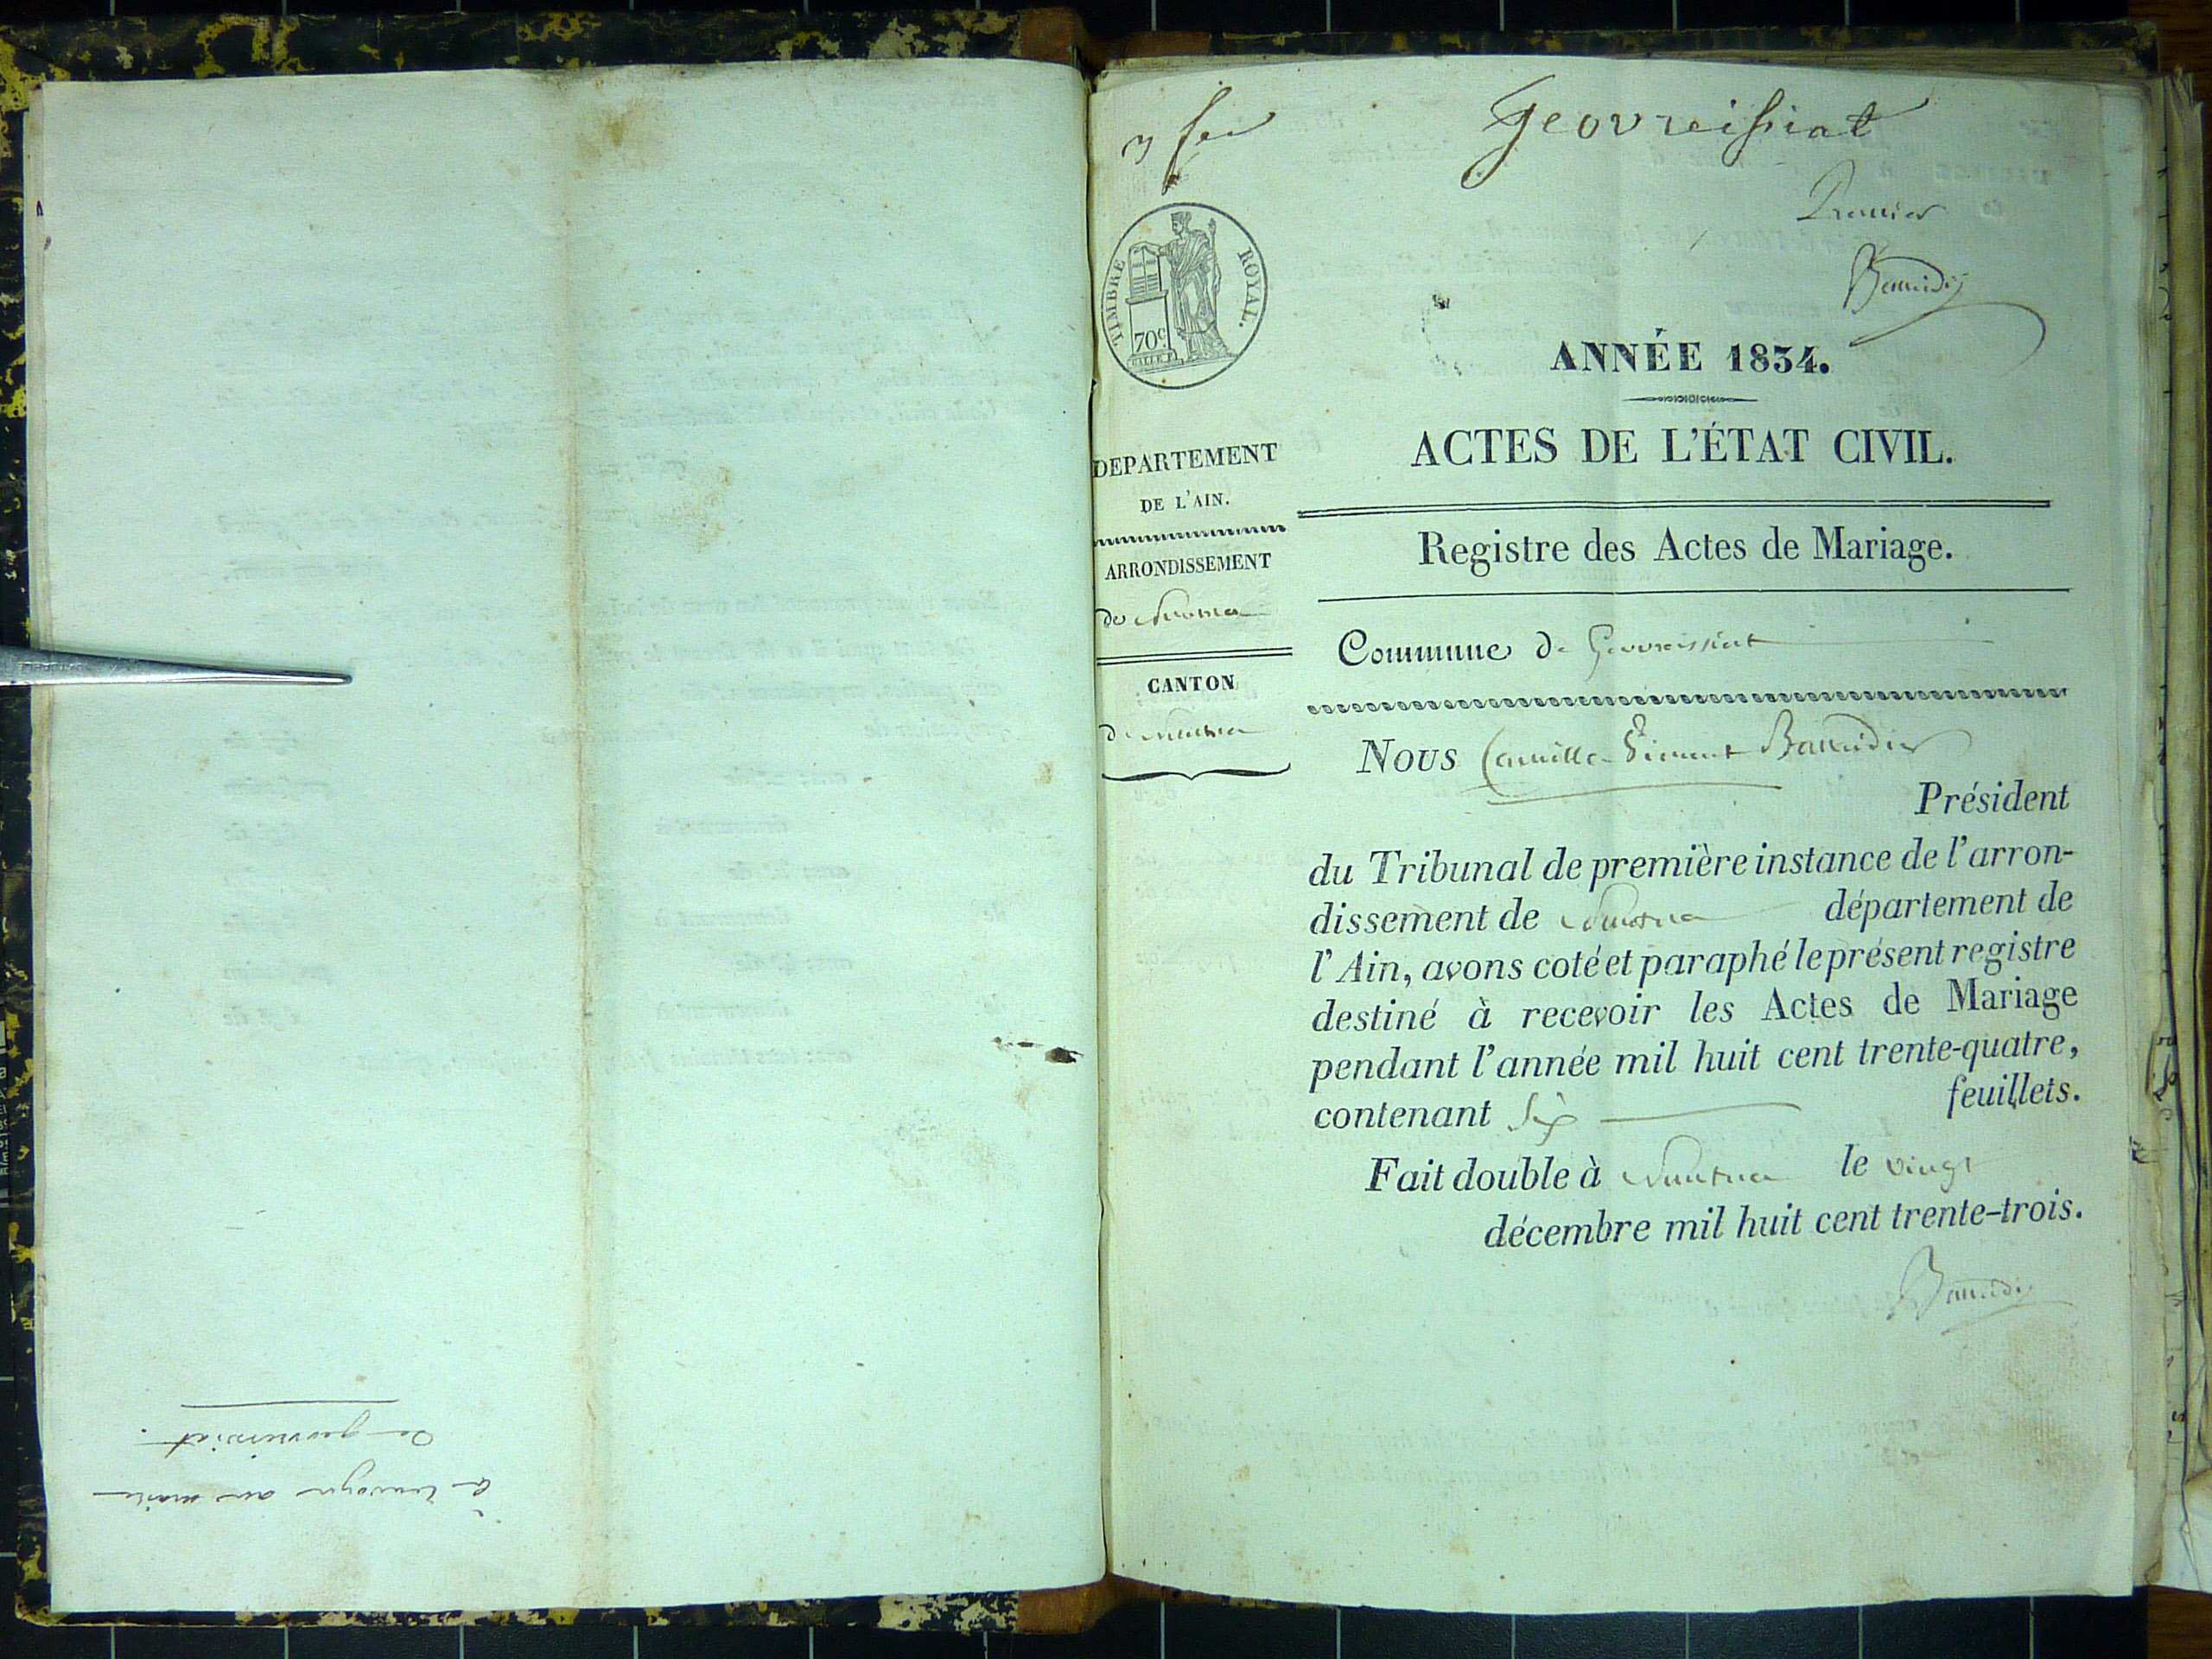 à renvoyer au maire
de geovreissiat.
Geovreissiat
Premier
TIMBRE ROYAL.
70c
ANNÉE 1834.
ACTES DE L'ÉTAT CIVIL.
DEPARTEMENT
DE L'AIN.
ARRONDISSEMENT
de Nantua
CANTON
de Nantua
Registre des Actes de Mariage.
Commune de Geovreissiat
Nous Camille
Président
du Tribunal de première instance de l'arron-
dissement de Nantua département de
l'Ain, avons coté et paraphé le présent registre
destiné à recevoir les Actes de Mariage
pendant l'année mil huit cent trente-quatre,
contenant six feuillets.
Fait double à Nantua le vingt
décembre mil huit cent trente-trois.